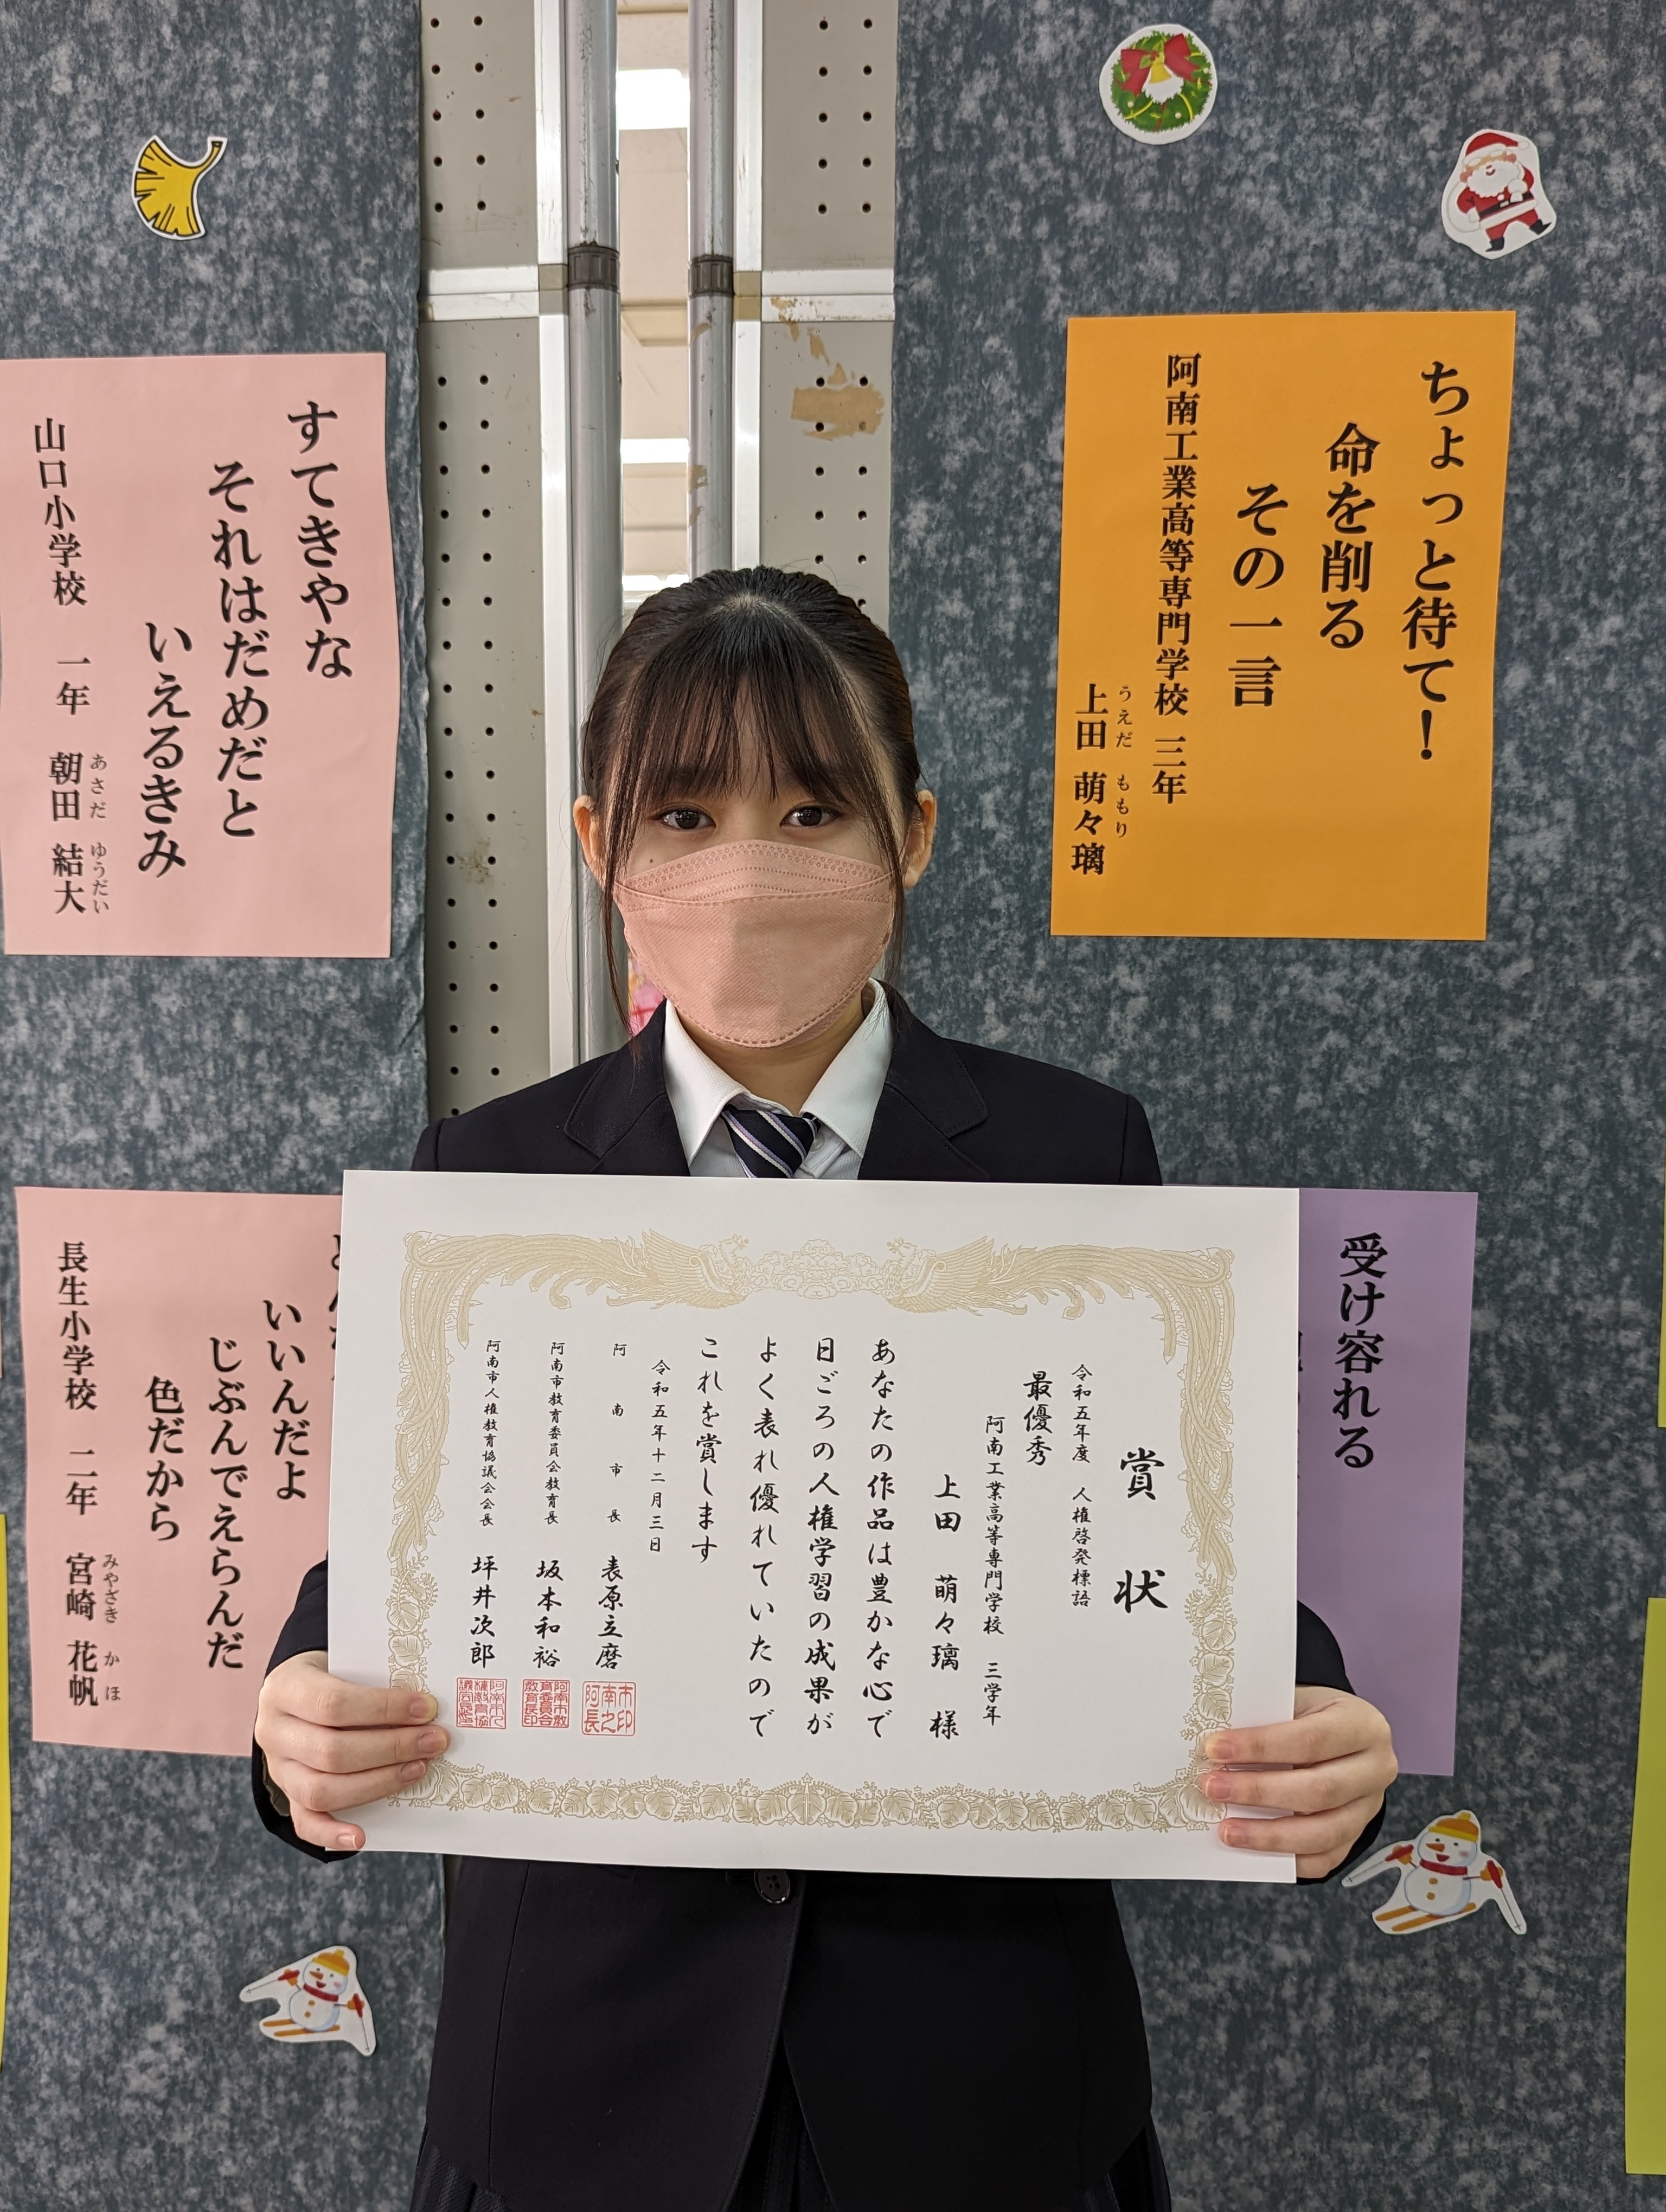 ちょっと待て！
命を削る
その一言
阿南工業高等専門学校 三年
上田 萌々璃
うえだ ももり
すてきやな
それはだめだと
いえるきみ
山口小学校 一年 朝田 結大
あさだ ゆうだい
受け容れる
いいんだよ
じぶんでえらんだ
色だから
長生小学校 二年 宮崎 花帆
みやざき かほ
賞状
令和五年度 人権啓発標語
最優秀
阿南工業高等専門学校 三学年
上田 萌々璃 様
あなたの作品は豊かな心で
日ごろの人権学習の成果が
よく表れ優れていたので
これを賞します
令和五年十二月三日
阿南市長 表原立磨
阿南市教育委員会教育長 坂本和裕
阿南市人権教育協議会会長 坪井次郎